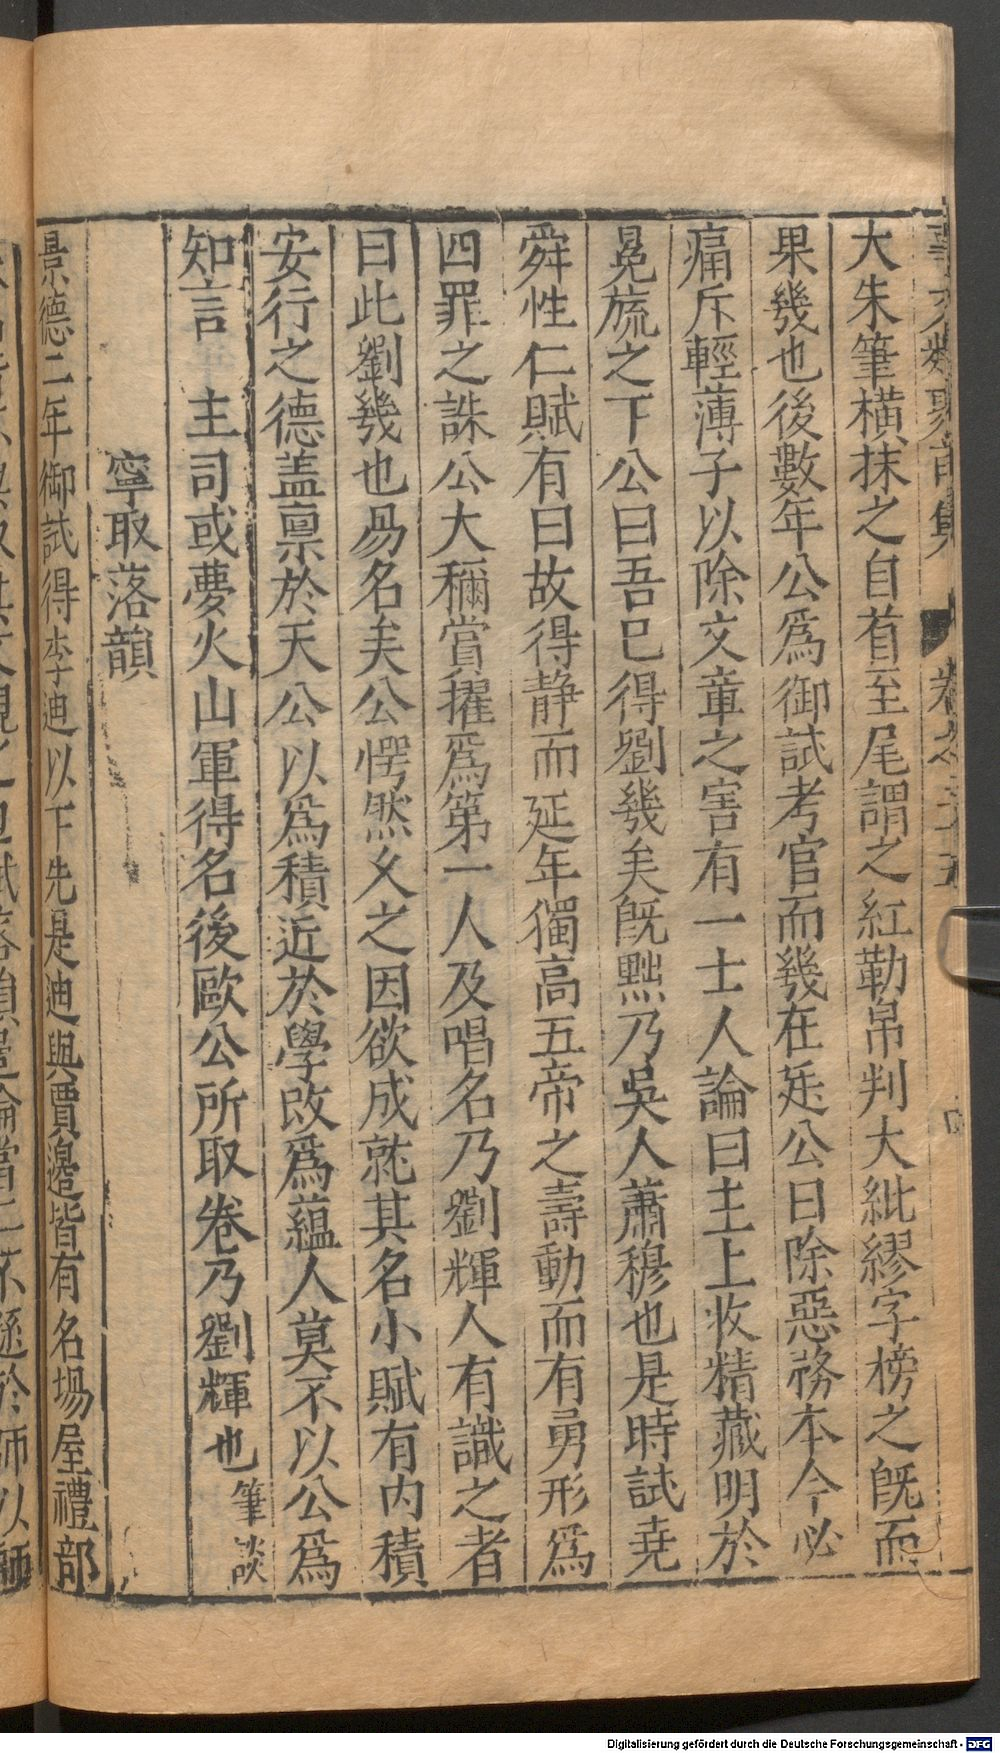 事文類聚前集 卷之二十五
大朱筆橫抹之自首至尾謂之紅勒帛判大紕繆字榜之旣而
果幾也後數年公爲御試考官而幾在廷公曰除惡務本今必
痛斥輕薄子以除文章之害有一士人論曰主上收精藏明於
冕旒之下公曰吾已得劉幾矣旣黜乃吳人蕭穆也是時試堯
舜性仁賦有曰故得静而延年獨高五帝之壽動而有勇形爲
四罪之誅公大稱賞擢爲第一人及唱名乃劉輝人有識之者
曰此劉幾也易名矣公愕然乆之因欲成就其名小賦有内積
安行之德盖禀於天公以爲積近於學改爲藴人莫不以公爲
知言 主司或夢火山軍得名後歐公所取卷乃劉輝也筆談
寧取落韻
景德二年御試得李迪以下先是迪與賈邊皆有名塲屋禮部
Digitalisierung gefördert durch die Deutsche Forschungsgemeinschaft - DFG